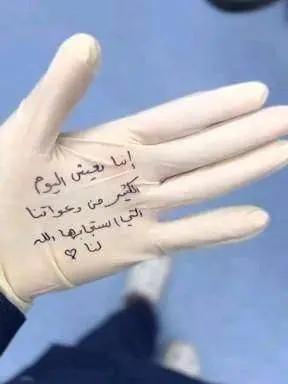 إننا نعيش اليوم
الكثير من دعواتنا
التي استجابها الله
لنا ♡